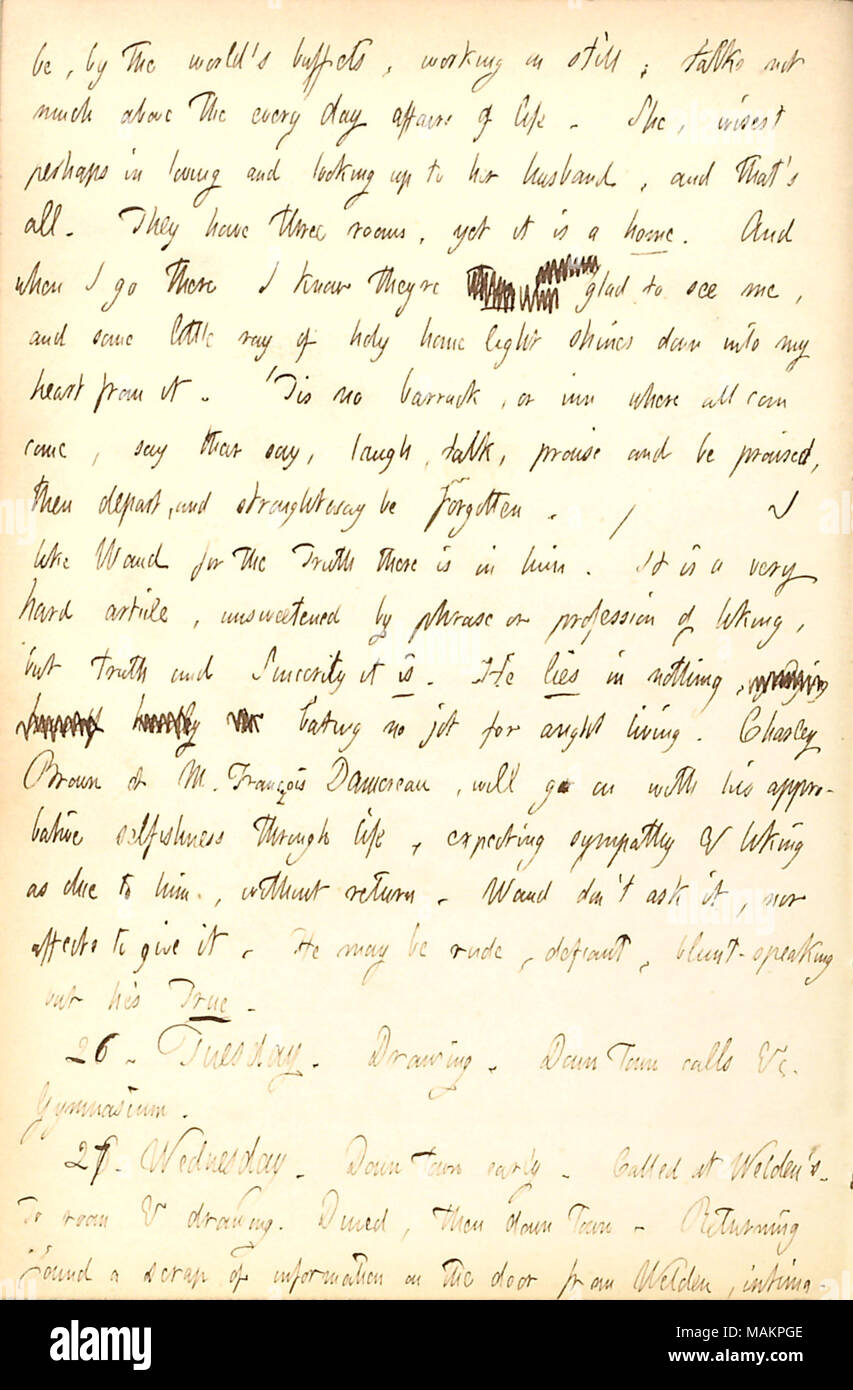 be, by the world's buffets, working on still; talks not
much above the every day affairs of life. She, wisest
perhaps in loving and looking up to her husband, and that's
all. They have three rooms, yet it is a home. And
when I go there I know theyre glad to see me,
and some little ray of holy home light shines down into my
heart from it. 'Tis no barrack, or inn where all can
come, say their say, laugh, talk, praise and be praised,
then depart, and straightway be forgotten. I
like Waud for the Truth there is in him. It is a very
hard article, unsweetened by phrase or profession of liking,
but truth and Sincerity it is. He lies in nothing,
bating no jot for aught living. Charley
Brown & M. François Damoreau, will go on with his appro-
bative selfishness through life, expecting sympathy & liking
as due to him, without return. Waud don't ask it, nor
affects to give it. He may be rude, defiant, blunt-speaking
but he's True.
26. Tuesday. Drawing. Down Town calls &c.
Gymnasium.
27. Wednesday. Down Town early. Called at Welden's.
To room & drawing. Dined, then down Town. Returning
found a scrap of information on the door from Welden, intima-
alamy
Image ID: MAKPGE
www.alamy.com